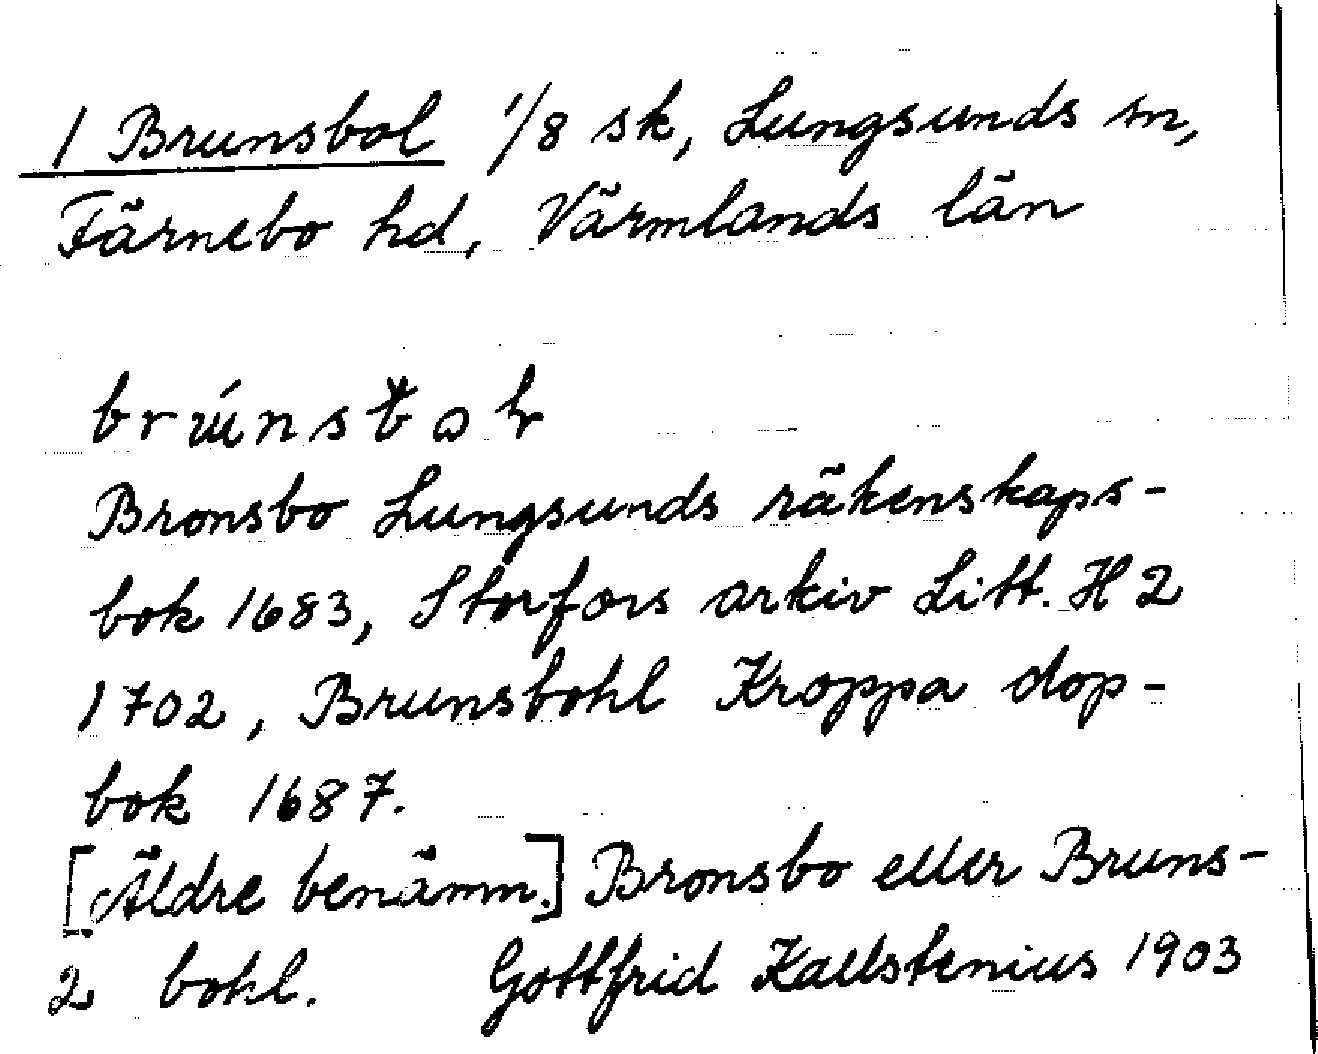 1 Brunsbol 1/8 sk, Lungsunds sn,
Färnebo hd, Värmlands län
Bronsbo Lungsunds räkenskaps-
bok 1683, Storfors arkiv Litt. H 2
1702, Brunsbohl Kroppa dop-
bok 1687.
[Äldre benämn.] Bronsbo eller Bruns-
2 bohl. Gottfrid Kallstenius 1903